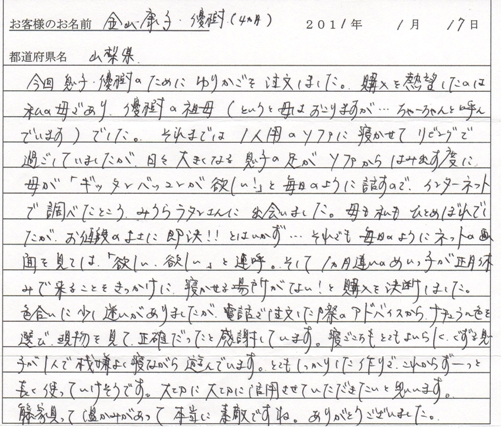 お客様のお名前 金山 康子・優樹(4ヵ月) 2011年 1月 17日
都道府県名 山梨県
今回 息子・優樹のために ゆりかごを 注文しました。購入を熱望したのは
私の母であり、優樹の祖母(というと母はおこりますが… ちゃーちゃんと呼ん
でいます)でした。それまでは 1人用のソファに 寝かせて リビングで
過ごしていましたが、日々 大きくなる 息子の足が ソファから はみ出す度に
母が「ギッタンバッコンが欲しい!」と毎日のように話すので、インターネット
で調べたところ、みうらラタンさんに 出会いました。母も私も ひとめぼれでし
たが、お値段のまさに即決!!とはいかず… それでも 毎日のようにネットの画
面を見ては、「欲しい、欲しい」と連呼。そして 1ヵ月違いのめいっ子が正月休
みで来ることをきっかけに、寝かせる場所がない!と購入を決断しました。
色合いに少し迷いがありましたが、電話で注文した際のアドバイスから、ナチュラル色を
選び、現物を見て、正確だったと感謝しています。寝ごこちもとてもよいらしく、ぐずる息
子が1人で機嫌よく寝ながら 遊んでいます。とてもしっかりした作りで、これからずーっと
長く使っていけそうです。大切に 大切に 活用させていただきたいと思います。
籐家具って 温かみがあって 本当に 素敵ですね。ありがとうございました。